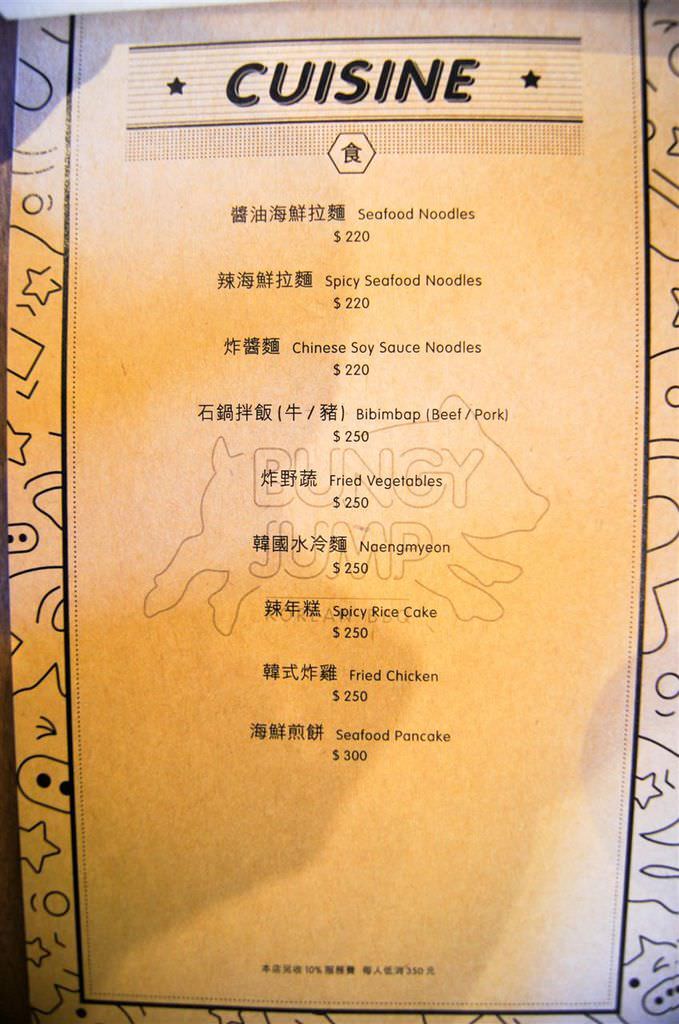 CUISINE
食
醬油海鮮拉麵 Seafood Noodles
$ 220
辣海鮮拉麵 Spicy Seafood Noodles
$ 220
炸醬麵 Chinese Soy Sauce Noodles
$ 220
石鍋拌飯 ( 牛 / 豬 ) Bibimbap (Beef / Pork)
$ 250
炸野蔬 Fried Vegetables
$ 250
BUNGY
韓國水冷麵 Naengmyeon
JUMP
$ 250
辣年糕 Spicy Rice Cake
KOREAN BBQ
$ 250
韓式炸雞 Fried Chicken
$ 250
海鮮煎餅 Seafood Pancake
$ 300
本店另收 10% 服務費 每人低消 350 元